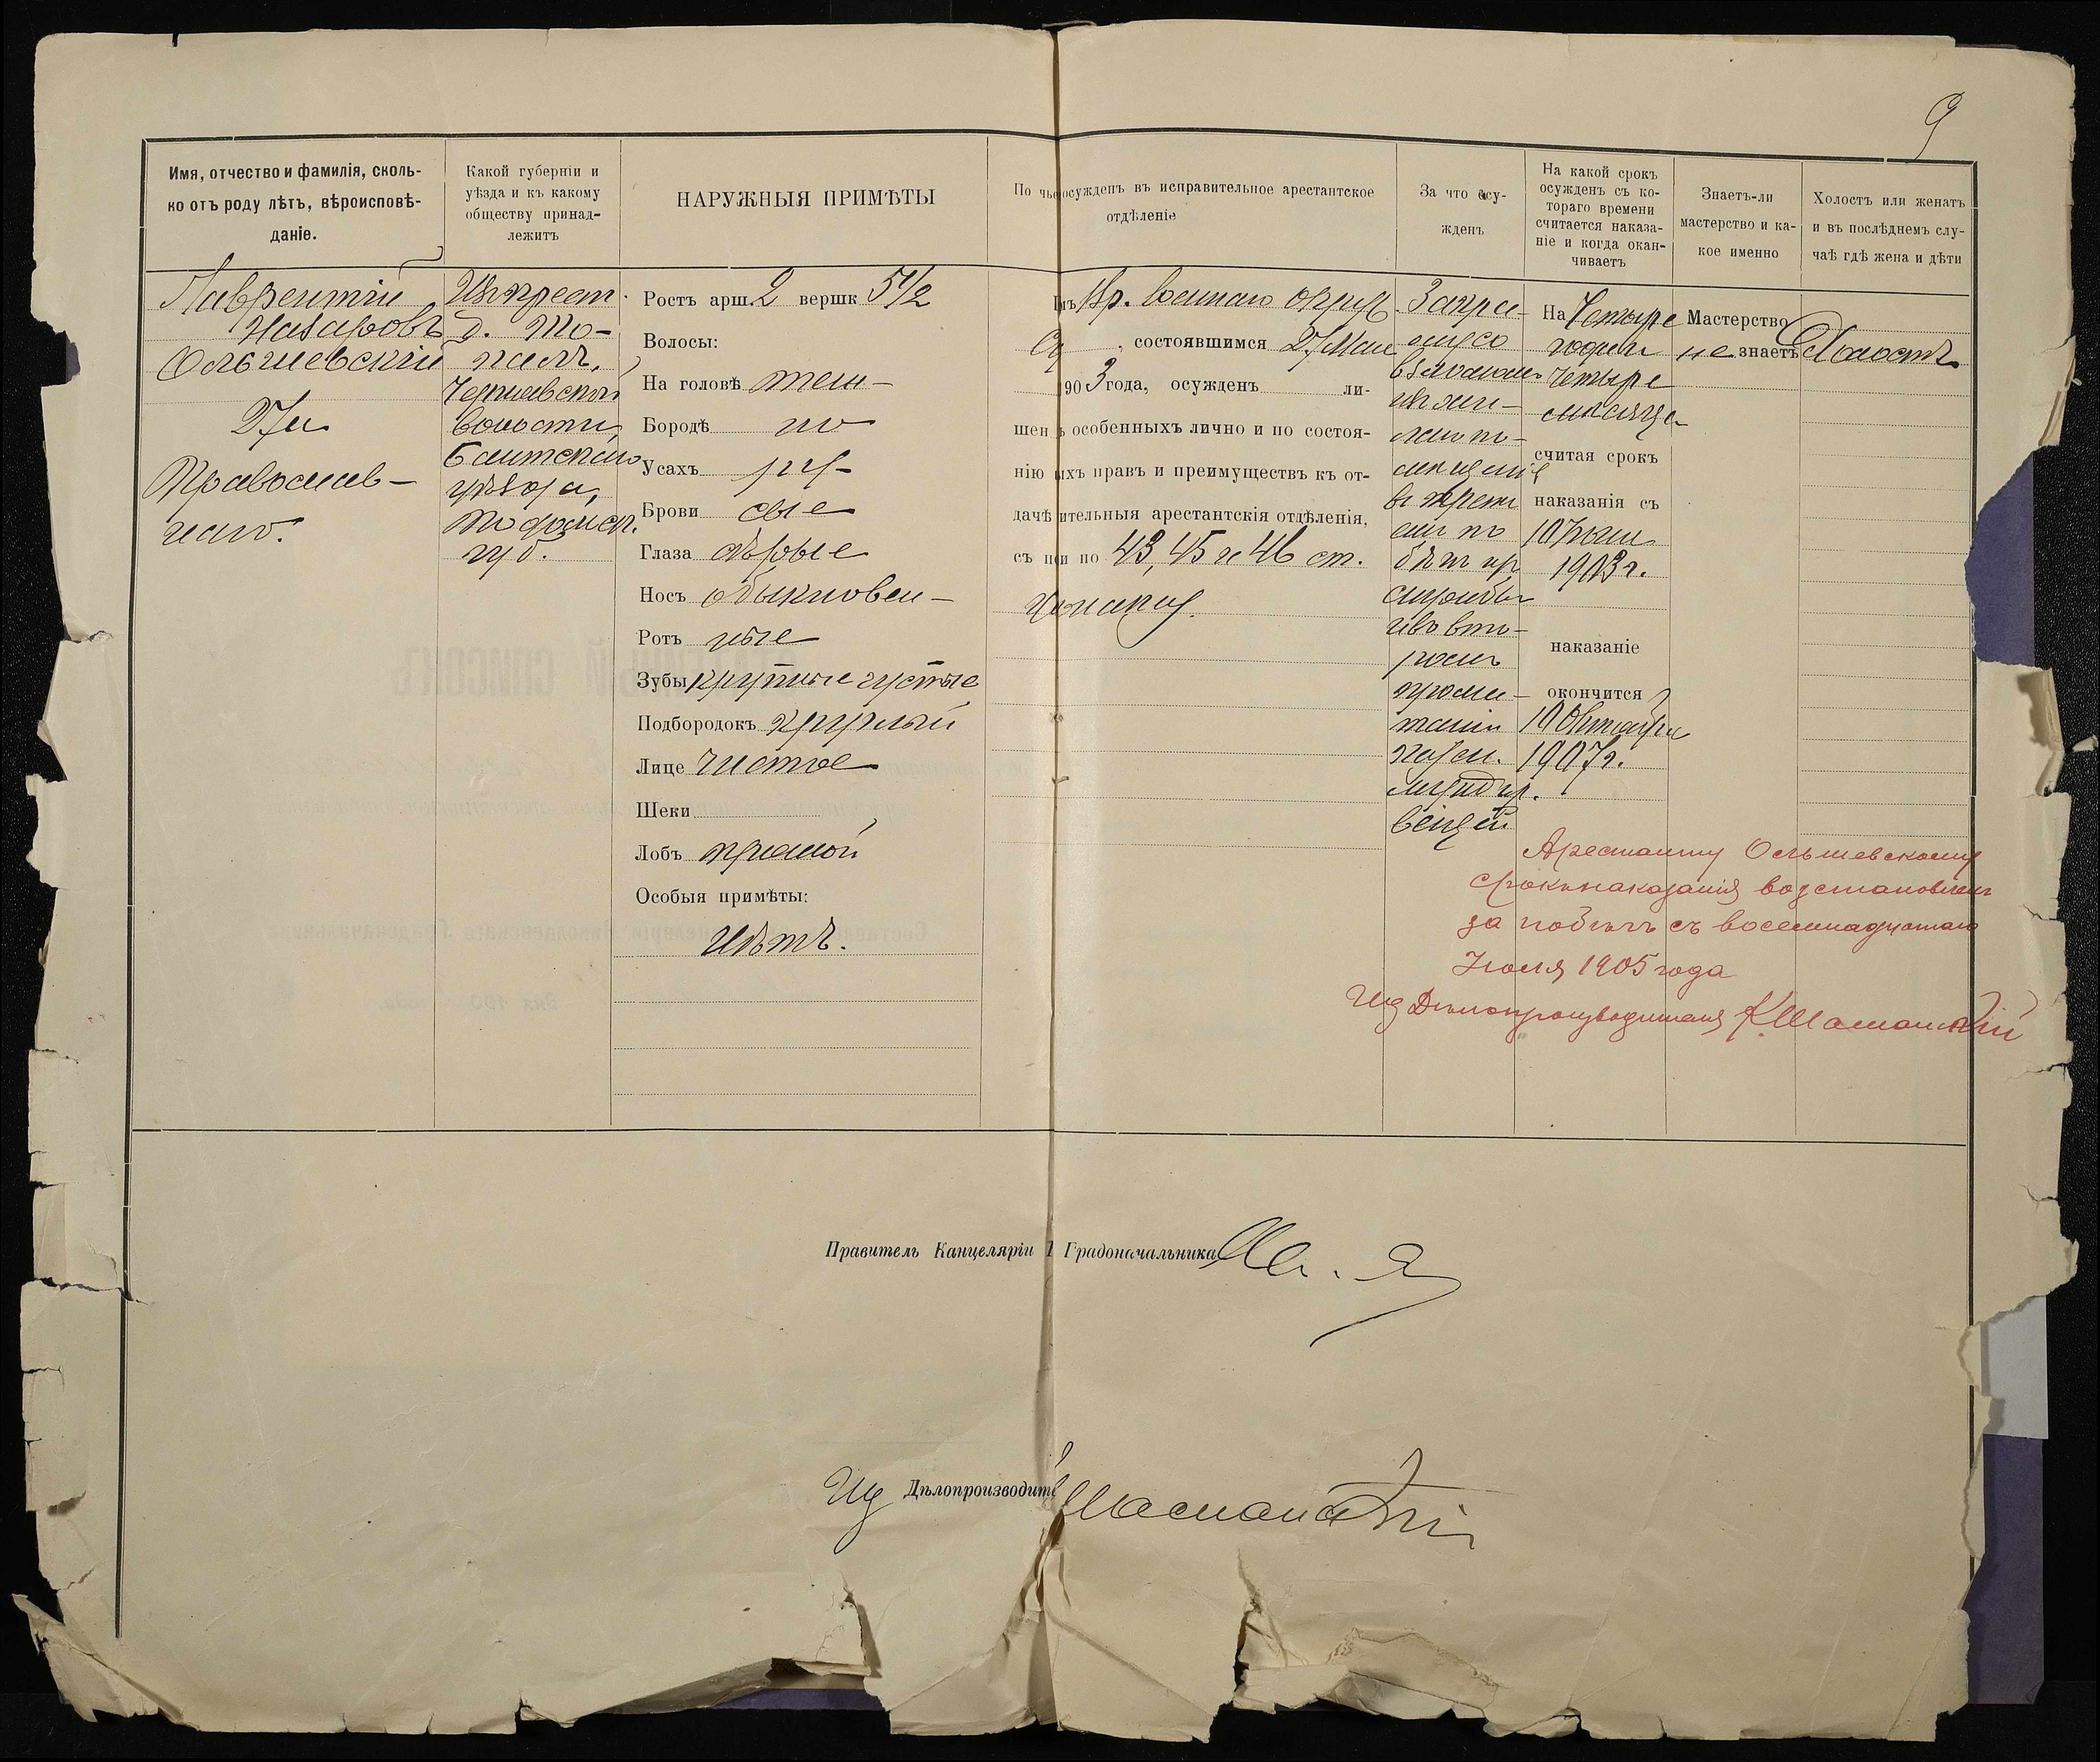 9
Имя, отчество и фамилія, сколь-
ко отъ роду лѣтъ, вѣроисповѣ-
даніе.
Какой губерніи и
уѣзда и къ какому
обществу принад-
лежитъ
НАРУЖНЫЯ ПРИМѢТЫ
По чье осужденъ въ исправительное арестантское
отдѣленіе
За что осу-
жденъ
На какой срокъ
осужденъ съ ко-
тораго времени
считается наказа-
ніе и когда окан-
чиваетъ
Знаетъ-ли
мастерство и ка-
кое именно
Холостъ или женатъ
и въ послѣднемъ слу-
чаѣ гдѣ жена и дѣти
Лаврентій
Назаровъ
Ольшевскій
27 л.
Православ-
наго.
Изъ крест.
д.
Чернявской
волости,
Балтскаго
уѣзда,
Подольск.
губ.
Ростъ арш. 2 вершк 5 1/2
Волосы:
На головѣ темн-
Бородѣ но
Усахъ ру-
Брови сые
Глаза сѣрые
Носъ обыкновен-
Ротъ ные
Зубы крупные густые
Подбородокъ круглый
Лице чистое
Щеки
Лобъ прямой
Особыя примѣты:
нѣтъ.
мъ Пр. Военнаго Окруж.
Су , состоявшимся 27 Мая
1903 года, осужденъ ли-
шен ъ особенныхъ лично и по состоя-
нію ыхъ правъ и преимуществъ къ от-
дачѣ ительныя арестантскія отдѣленія,
съ п и по 43, 45 и 46 ст.
За кра-
жу со
взломомъ
въ жи-
ломъ по-
мѣщеніи
въ трет
ій по-
бѣгъ
службы
и во вто-
ромъ
промо-
таніи
казен.
мундир.
вещей
На Четыре
года и
четыре
мѣсяца
считая срокъ
наказанія съ
10 Іюня
1903 г.
наказаніе
окончится
10 Октября
1907 г.
Мастерство
не знаетъ
Холостъ
Арестанту Ольшевскому
срокъ наказанія возстановленъ
за побѣгъ съ восемнадцатаго
Іюля 1905 года
Ид Дѣлопроизводителя К. Шаманскій
Правитель Канцеляріи Градоначальника
Ид Дѣлопроизводите Шаманскій